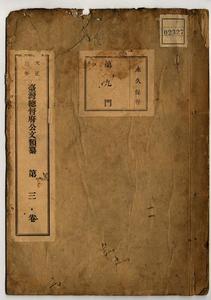 02327
永久保存
第九門
大正
臺灣總督府公文類纂
第三卷